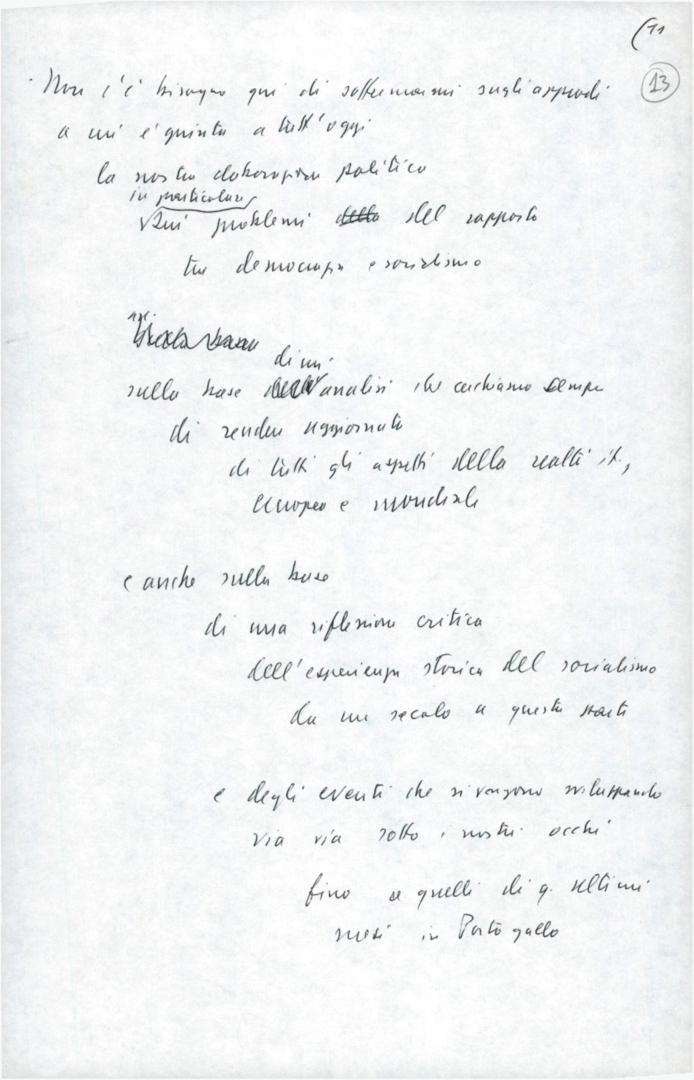 (11
13
Non c'è bisogno qui di soffermarmi sugli approdi
a cui è giunta a tutt'oggi
la nostra elaborazione politica
in particolare
sui problemi della del rapporto
tra democrazia e socialismo
di un'
sulla base dell'analisi che cerchiamo sempre
di rendere aggiornata
di tutti gli aspetti della realtà it.,
europea e mondiale
e anche sulla base
di una riflessione critica
dell'esperienza storica del socialismo
da un secolo a questa parte
e degli eventi che si vengono sviluppando
via via sotto i nostri occhi
fino a quelli di q. ultimi
mesi in Portogallo